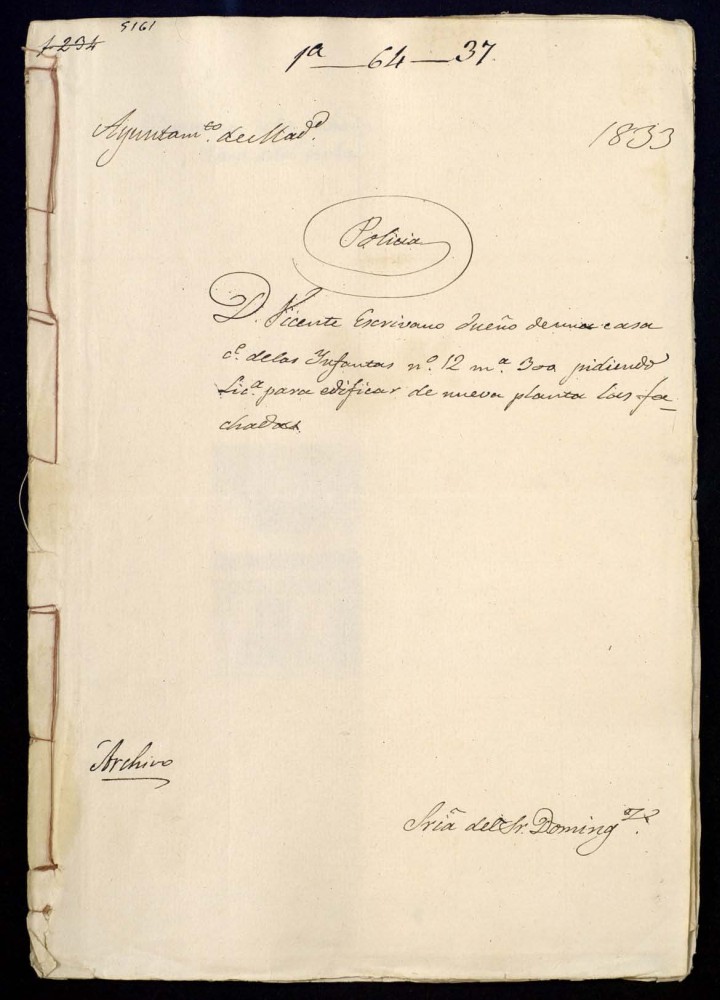 1-234
1ª — 64 — 37.
Ayuntamto. de Madd.
1833
Policia
D. Vicente Escrivano dueño de una casa
c.e de las Infantas n.º 12 m.ª 300 pidiendo
Lic.ª para edificar de nueva planta las fa-
chadas.
Archivo
Sriã del Sr. Domingz.